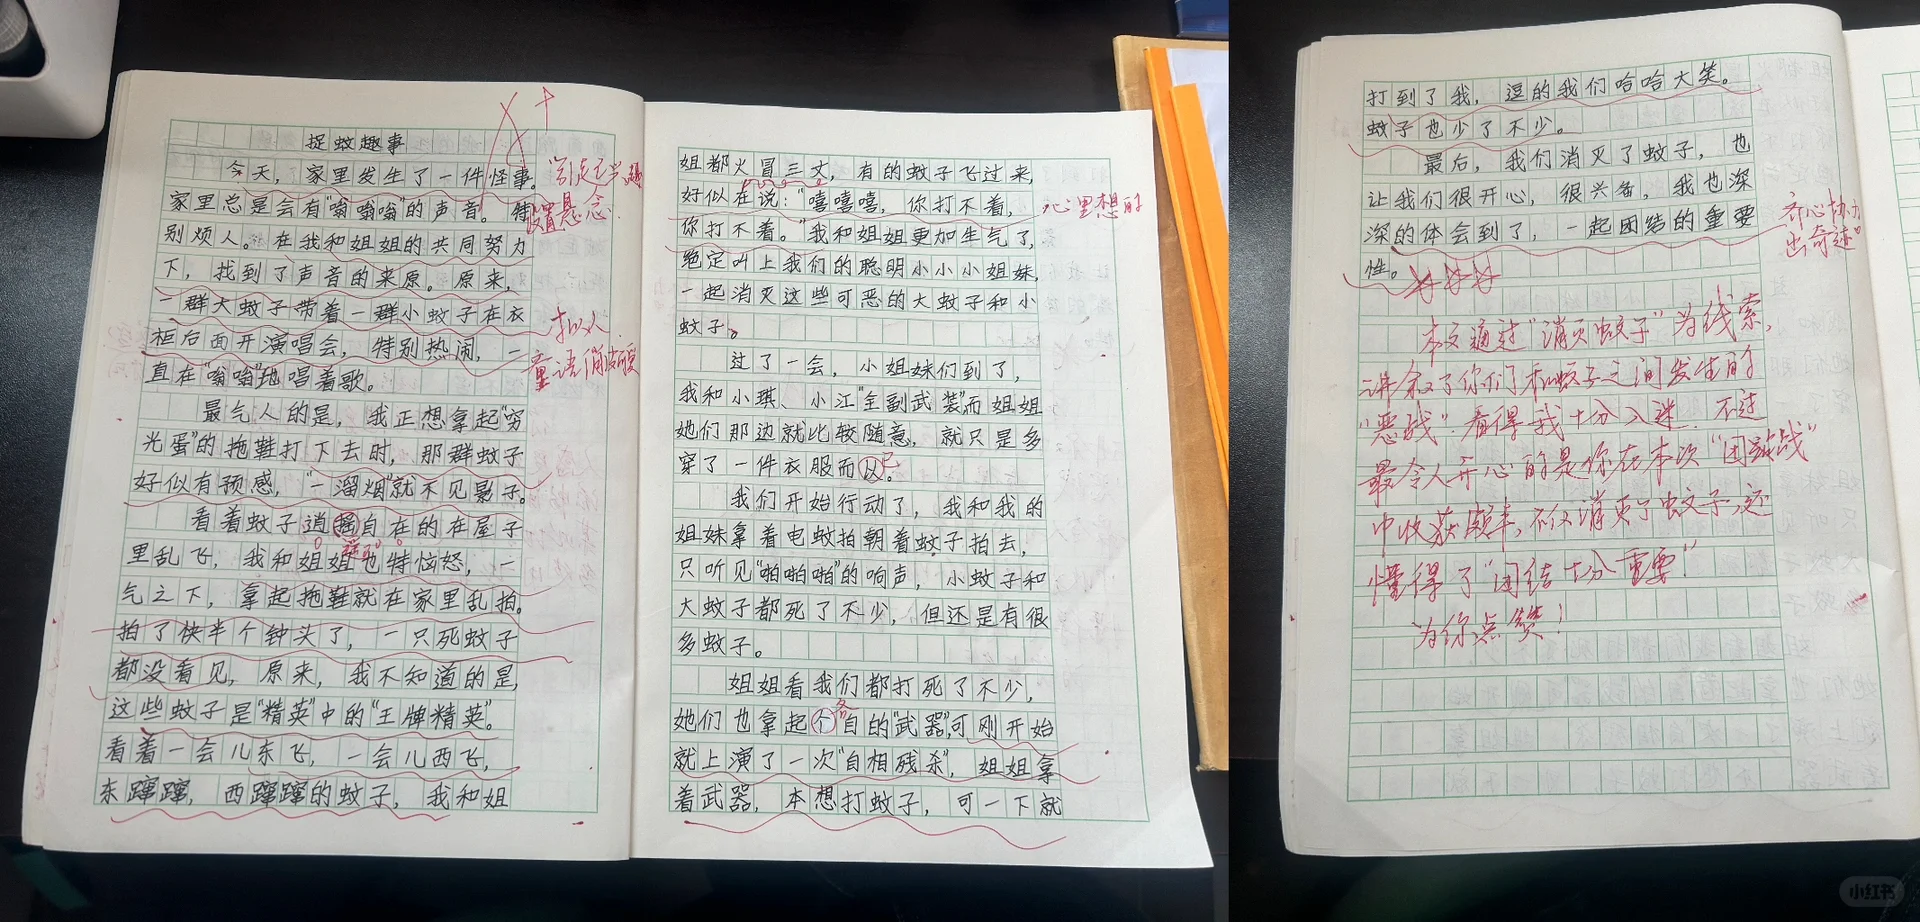 捉蚊趣事
今天，家里发生了一件怪事。
家里总是会有"嗡嗡嗡"的声音。特
设置悬念
别烦人。在我和姐姐的共同努力
下，找到了声音的来原。原来，
一群大蚊子带着一群小蚊子在衣
拟人
柜后面开演唱会，特别热闹，一
童语俏皮
直在"嗡嗡"地唱着歌。
最气人的是，我正想拿起"穷
光蛋"的拖鞋打下去时，那群蚊子
好似有预感，"一溜烟"就不见影子。
看着蚊子逍摇自在的在屋子
里乱飞，我和姐姐也特恼怒，一
气之下，拿起拖鞋就在家里乱拍。
拍了快半个钟头了，一只死蚊子
都没看见，原来，我不知道的是，
这些蚊子是"精英"中的"王牌精英"。
看着一会儿东飞，一会儿西飞，
东蹿蹿，西蹿蹿的蚊子，我和姐
姐都火冒三丈，有的蚊子飞过来，
好似在说："嘻嘻嘻，你打不着，
心里想的
你打不着。"我和姐姐更加生气了，
绝定叫上我们的聪明小小小姐妹，
一起消灭这些可恶的大蚊子和小
蚊子。
过了一会，小姐妹们到了，
我和小琪、小江"全副武装"而姐姐
她们那边就比较随意，就只是多
穿了一件衣服而以。
已
我们开始行动了，我和我的
姐妹拿着电蚊拍朝着蚊子拍去，
只听见"啪啪啪"的响声，小蚊子和
大蚊子都死了不少，但还是有很
多蚊子。
姐姐看我们都打死了不少，
各
她们也拿起个自的"武器"，可刚开始
就上演了一次"自相残杀"，姐姐拿
着武器，本想打蚊子，可一下就
打到了我，逗的我们哈哈大笑。
蚊子也少了不少。
最后，我们消灭了蚊子，也
让我们很开心，很兴备，我也深
深的体会到了，一起团结的重要
性。
齐心协力
出奇迹"
本文通过"消灭蚊子"为线索，
讲叙了你们和蚊子之间发生的
"恶战"。看得我十分入迷。不过
最令人开心的是你在本次"团战"
中收获颇丰，不仅消灭了蚊子，还
懂得了"团结十分重要"
为你点赞！
小红书